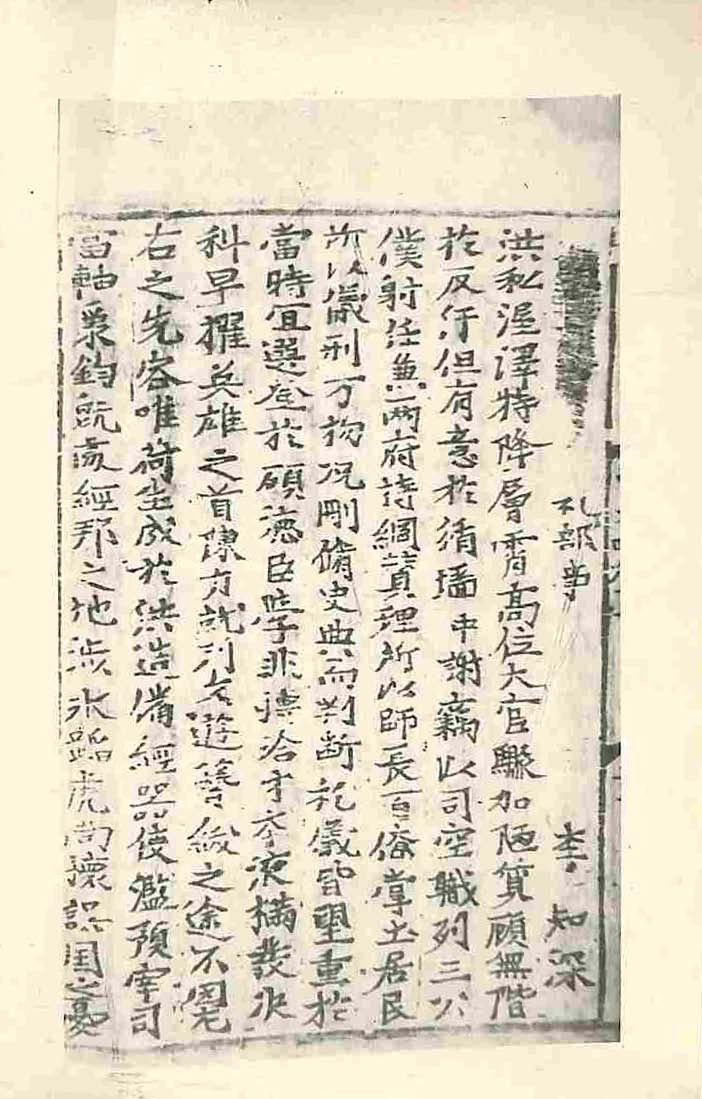 礼部事 李知深
洪私渥澤特降層霄高位大官驟加陋質顧無階
於反汙但有意於循墻中謝竊以司空職列三公
僕射任兼兩府詩綱貰理所以師長百僚掌土居民
所以儀刑万物况刪脩史典而判断礼儀皆望重於
當時宜選登於碩德臣學非博洽才李液樠發決
科早擢英雄之首陳力就列之遊簪紱之途不
右之先容唯荷生成於洪造備經器使濫預宰司
當軸秉鈞既處經邦之地涉氷蹈虎尚懷誤国之憂